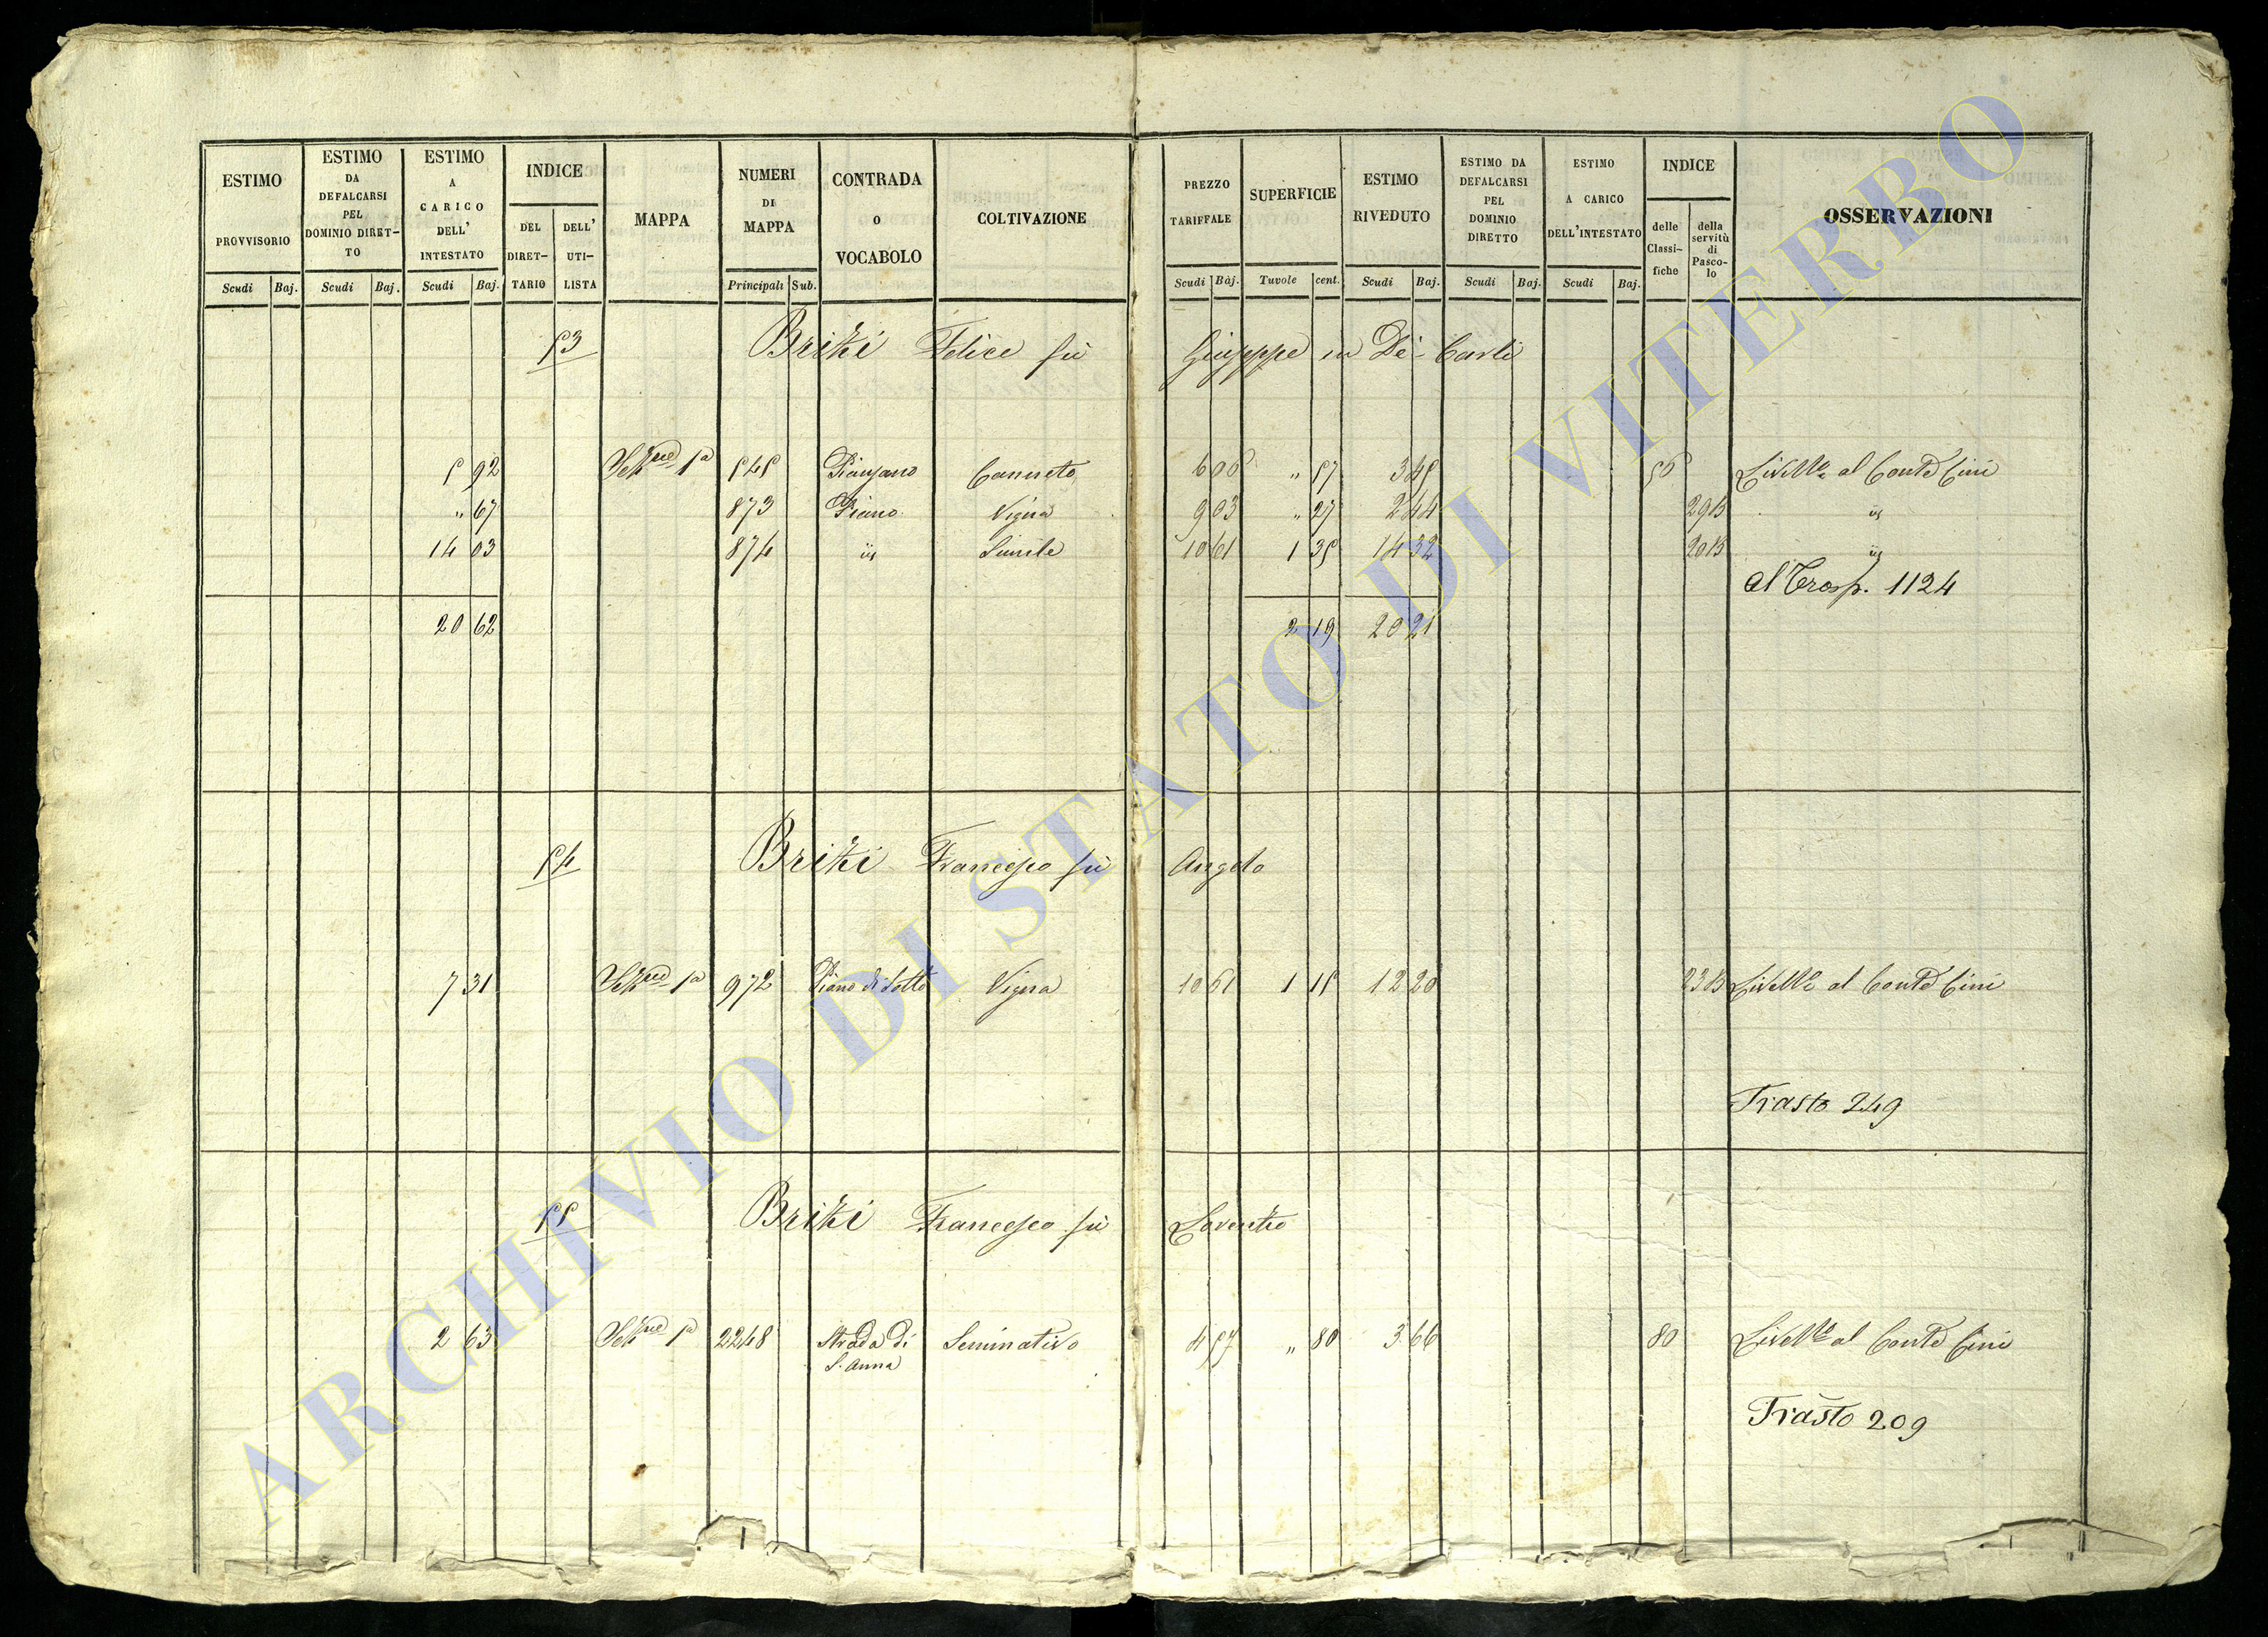 ESTIMO PROVVISORIO Scudi Baj.
ESTIMO DA DEFALCARSI PEL DOMINIO DIRET-TO Scudi Baj.
ESTIMO A CARICO DELL' INTESTATO Scudi Baj.
INDICE DEL DIRET-TARIO DELL' UTI-LISTA
MAPPA
NUMERI DI MAPPA Principali Sub.
CONTRADA O VOCABOLO
COLTIVAZIONE
PREZZO TARIFFALE Scudi Baj.
SUPERFICIE Tavole cent.
ESTIMO RIVEDUTO Scudi Baj.
ESTIMO DA DEFALCARSI PEL DOMINIO DIRETTO Scudi Baj.
ESTIMO A CARICO DELL'INTESTATO Scudi Baj.
INDICE delle Classi-fiche della servitù di Pasco-lo
OSSERVAZIONI
53 Brizi Felice fù Giuseppe in De-Carli
5 92 Sezne 1a 545 Pianzano Canneto 6 06 " 57 3 45 56 Livello al Conte Cini
" 67 873 Piano Vigna 9 03 " 27 2 44 29 B id
14 03 874 id Simile 10 61 1 35 14 32 20 B id
Al Trasp. 1124
20 62 2 19 20 21
54 Brizi Francesco fù Angelo
7 31 Sezne 1a 972 Piano di Sotto Vigna 10 61 1 15 12 20 23 B Livello al Conte Cini
Trasto 249
55 Brizi Francesco fù Loreto
2 63 Sezne 1a 2248 Strada di S. Anna Seminativo 4 57 " 80 3 66 80 Livello al Conte Cini
Trasto 209
ARCHIVIO DI STATO DI VITERBO